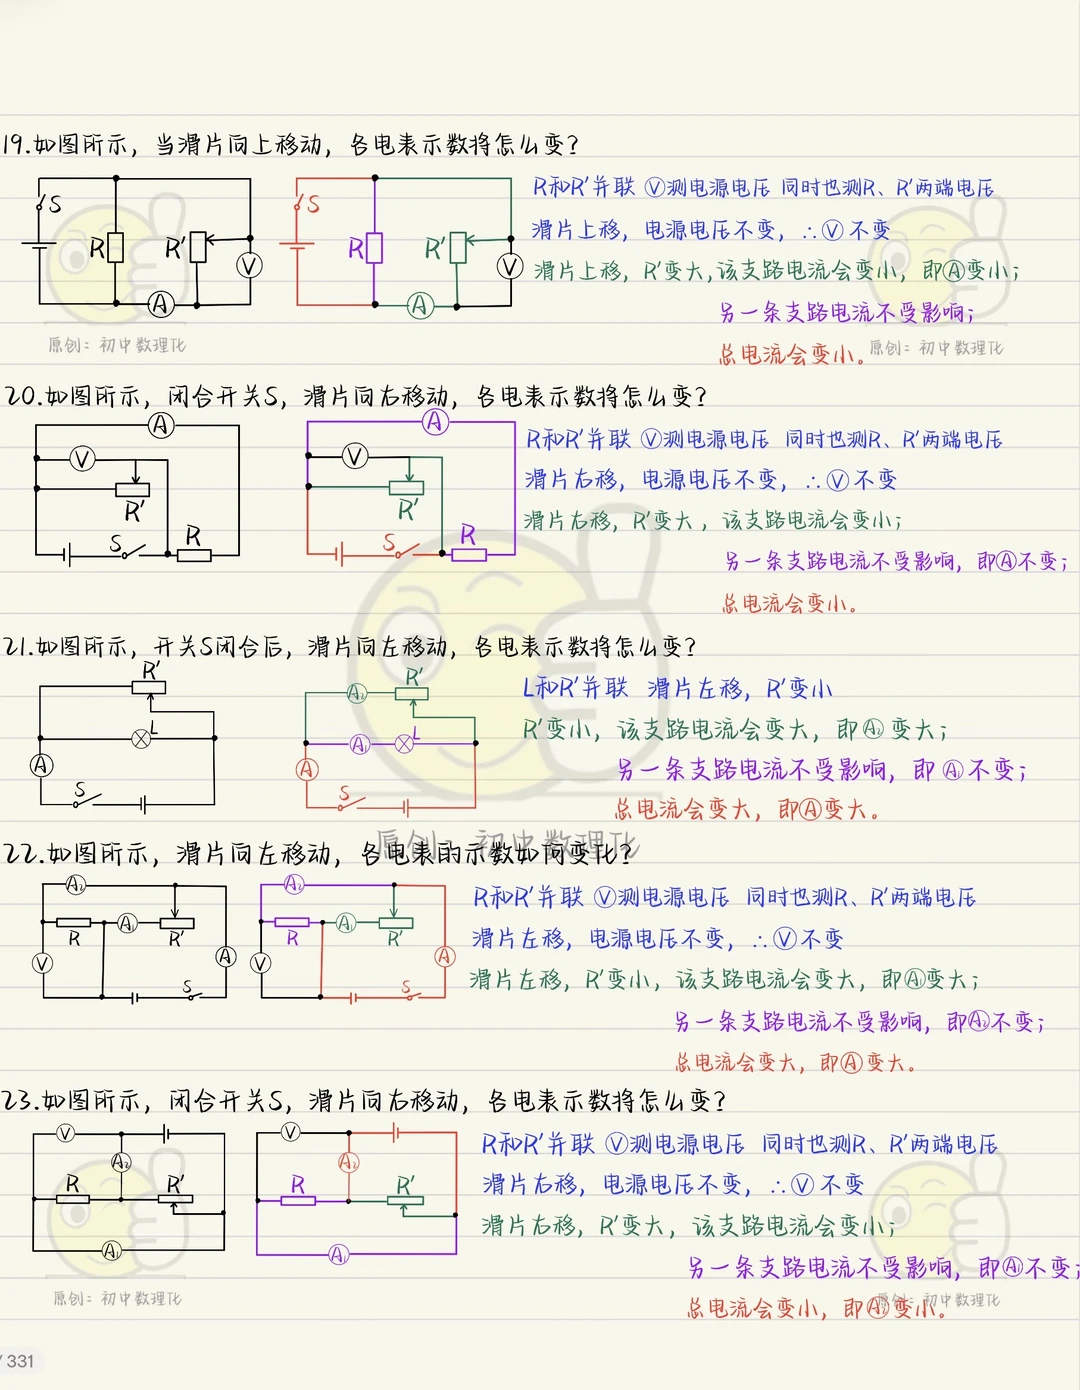 19.如图所示，当滑片向上移动，各电表示数将怎么变？
S
R
R′
V
A
S
R
R′
V
A
R和R′并联 Ⓥ测电源电压 同时也测R、R′两端电压
滑片上移，电源电压不变，∴Ⓥ不变
滑片上移，R′变大，该支路电流会变小，即Ⓐ变小；
另一条支路电流不受影响；
总电流会变小。
原创：初中数理化
原创：初中数理化
20.如图所示，闭合开关S，滑片向右移动，各电表示数将怎么变？
A
V
R′
S
R
A
V
R′
S
R
R和R′并联 Ⓥ测电源电压 同时也测R、R′两端电压
滑片右移，电源电压不变，∴Ⓥ不变
滑片右移，R′变大，该支路电流会变小；
另一条支路电流不受影响，即Ⓐ不变；
总电流会变小。
21.如图所示，开关S闭合后，滑片向左移动，各电表示数将怎么变？
R′
L
A
S
A₂
R′
A₁
L
A
S
L和R′并联 滑片左移，R′变小
R′变小，该支路电流会变大，即A₂变大；
另一条支路电流不受影响，即A₁不变；
总电流会变大，即Ⓐ变大。
原创：初中数理化
22.如图所示，滑片向左移动，各电表的示数如何变化？
A₂
R
A₁
R′
V
A
S
A₂
R
A₁
R′
V
A
S
R和R′并联 Ⓥ测电源电压 同时也测R、R′两端电压
滑片左移，电源电压不变，∴Ⓥ不变
滑片左移，R′变小，该支路电流会变大，即A₁变大；
另一条支路电流不受影响，即A₂不变；
总电流会变大，即Ⓐ变大。
23.如图所示，闭合开关S，滑片向右移动，各电表示数将怎么变？
V
A₂
R
R′
A₁
V
A₂
R
R′
A₁
R和R′并联 Ⓥ测电源电压 同时也测R、R′两端电压
滑片右移，电源电压不变，∴Ⓥ不变
滑片右移，R′变大，该支路电流会变小；
另一条支路电流不受影响，即A₁不变；
总电流会变小，即A₂变小。
原创：初中数理化
原创：初中数理化
/ 331